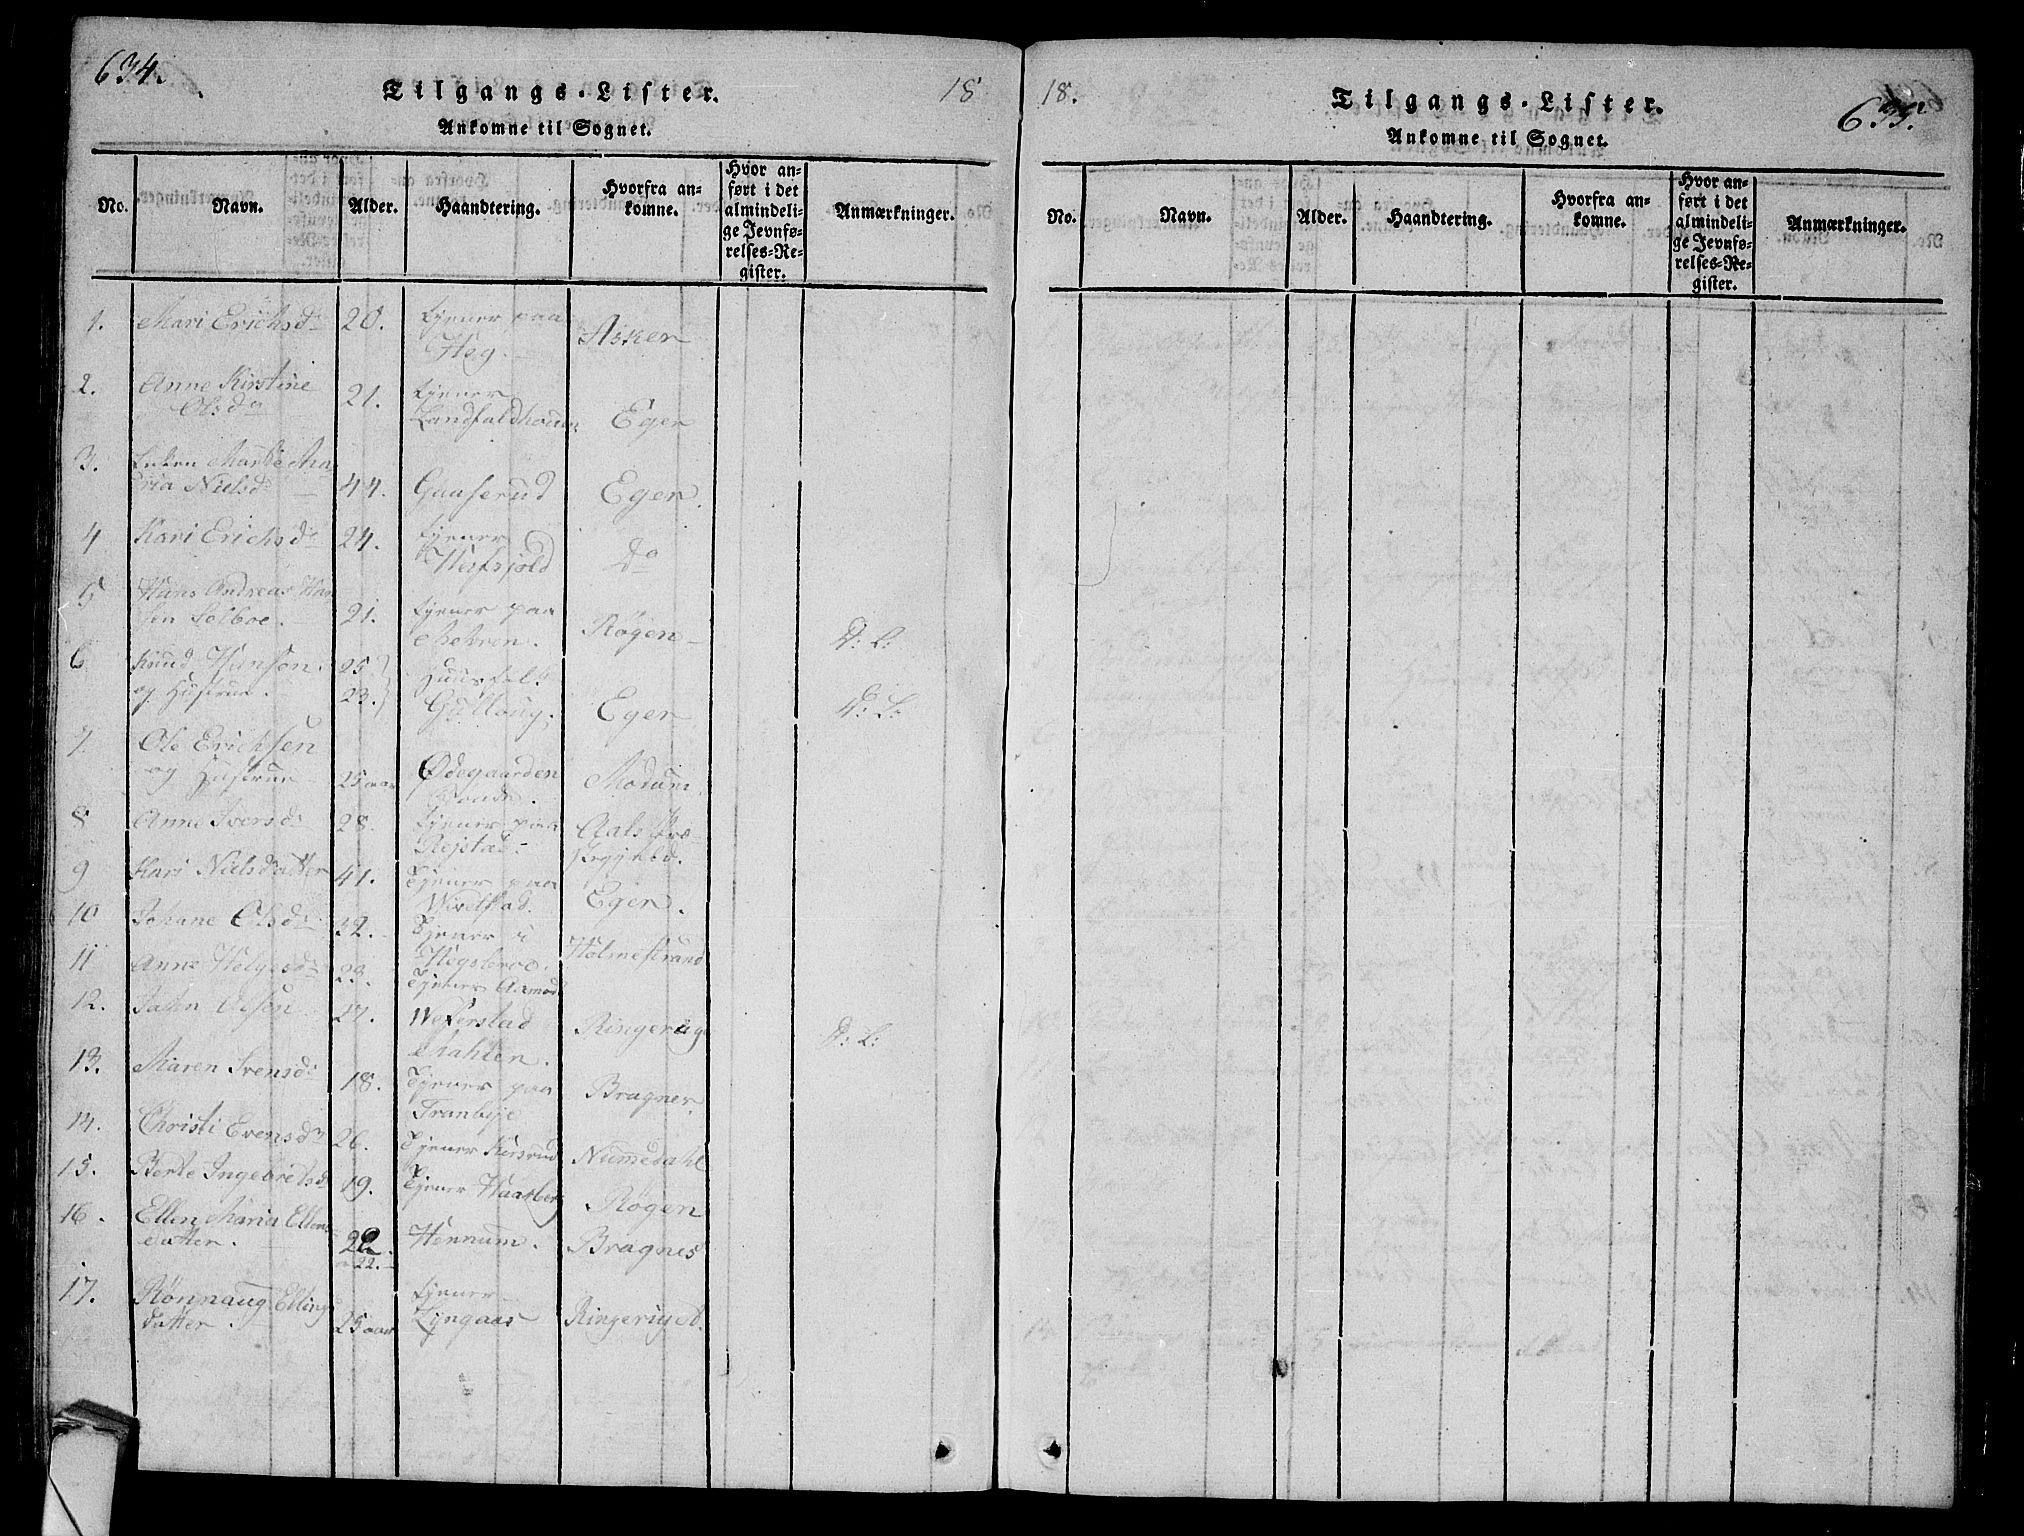 634.
Tilgangs-Lister.
18
Ankomne til Sognet.
No. Navn. Alder. Haandtering. Hvorfra ankomne. Hvor anført i det almindelige Jevnførelses-Register. Anmærkninger.
1. Mari Erichsd: 20. tjener paa Heg. Asker
2. Anne Kirstine Olsd: 21. tjener Landfaldhouen Eger
3. Enken Marthe Maria Nielsd: 44. Gaaserud Eger
4 Kari Erichsd: 24. tjener do
5 Hans Andreas Hansen Solboe. 21. tjener paa Røgen D: L:
6 Knud Hansen og Hustrue. 25 23. Huusfolk Gulloug. Eger D: L:
7. Ole Erichsen og Hustrue 25 aar Ødegaarden Modum
8 Anne Iversd: 28. tjener paa Aals
9 Kari Nielsdatter 41. Tjener paa Wivelstad. Eger.
10 Johane Olsd: 32. Tjener i Hegsbroe. Holmestrand
11 Anne Helgesd: 23. Tjener
12. 27. Ringerige D: L:
13. Maren Svensd: 18. Tjener paa Tranbye Bragner.
14. Christi Evensd: 26. Tjener Kirsrud Numedahl
15. Berte Ingebretsd 19. Tjener Haasberg Røgen
16. Ellen Maria Ellensdatter. 22. 22. Hennum. Bragnes
17. Rønnaug Ellingsdatter. 25 aar tjener Lyngaas Ringeriget.
18.
Tilgangs-Lister.
635.
Ankomne til Sognet.
No. Navn. Alder. Haandtering. Hvorfra ankomne. Hvor anført i det almindelige Jevnførelses-Register. Anmærkninger.